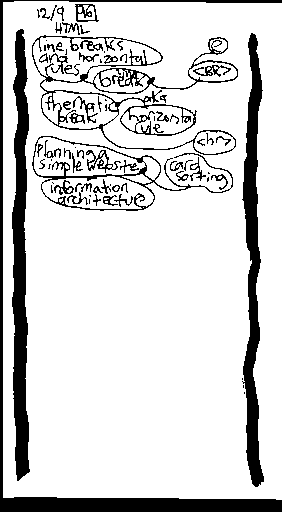 12/9 96
HTML
line breaks
and horizontal
rules
line
break
e
<BR>
thematic
break
aka
horizontal
rule
<hr>
Planning a
simple website
card
sorting
information
architecture